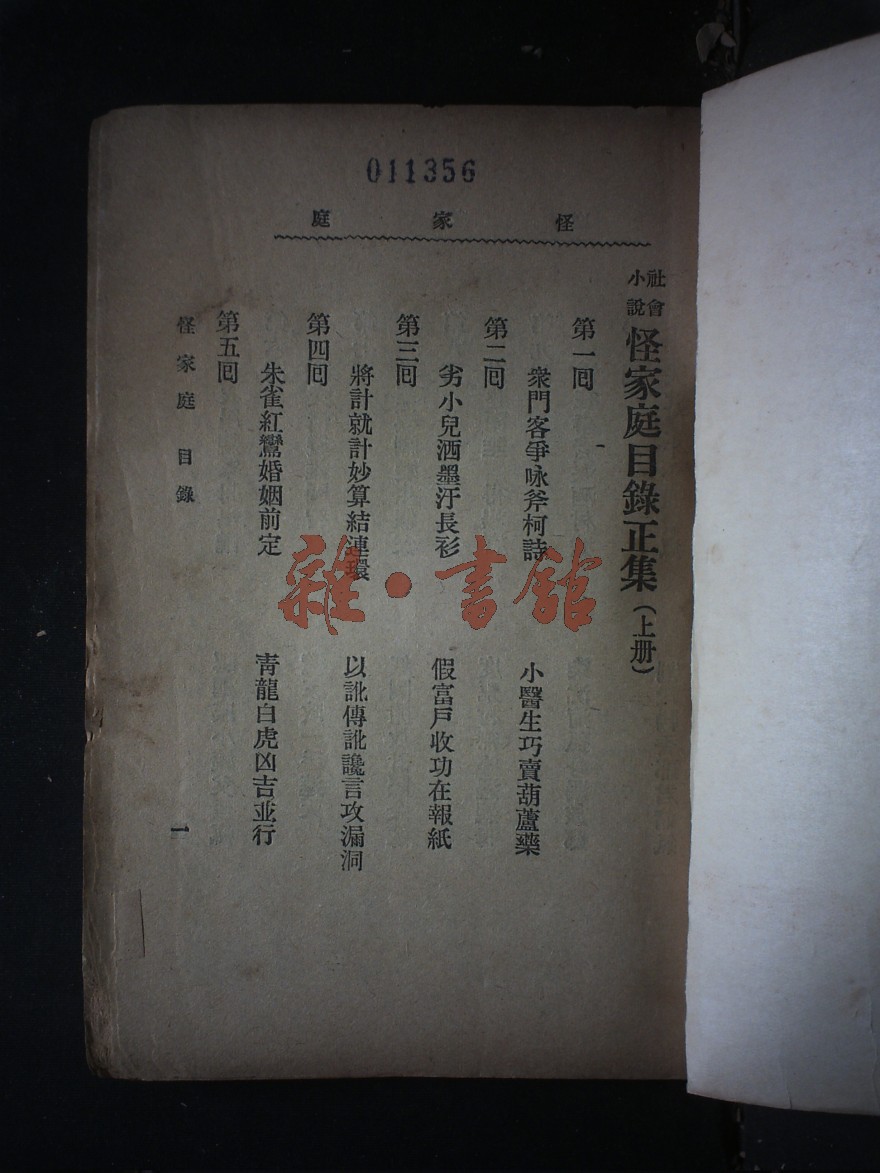 011356
怪家庭
社會小說 怪家庭目錄正集（上册）
第一囘
衆門客爭咏斧柯詩 小醫生巧賣葫蘆藥
第二囘
劣小兒洒墨汙長衫 假富戶收功在報紙
第三囘
將計就計妙算結連環 以訛傳訛讒言攻漏洞
第四囘
朱雀紅鸞婚姻前定 靑龍白虎凶吉並行
第五囘
怪家庭 目錄 一
雜·書館